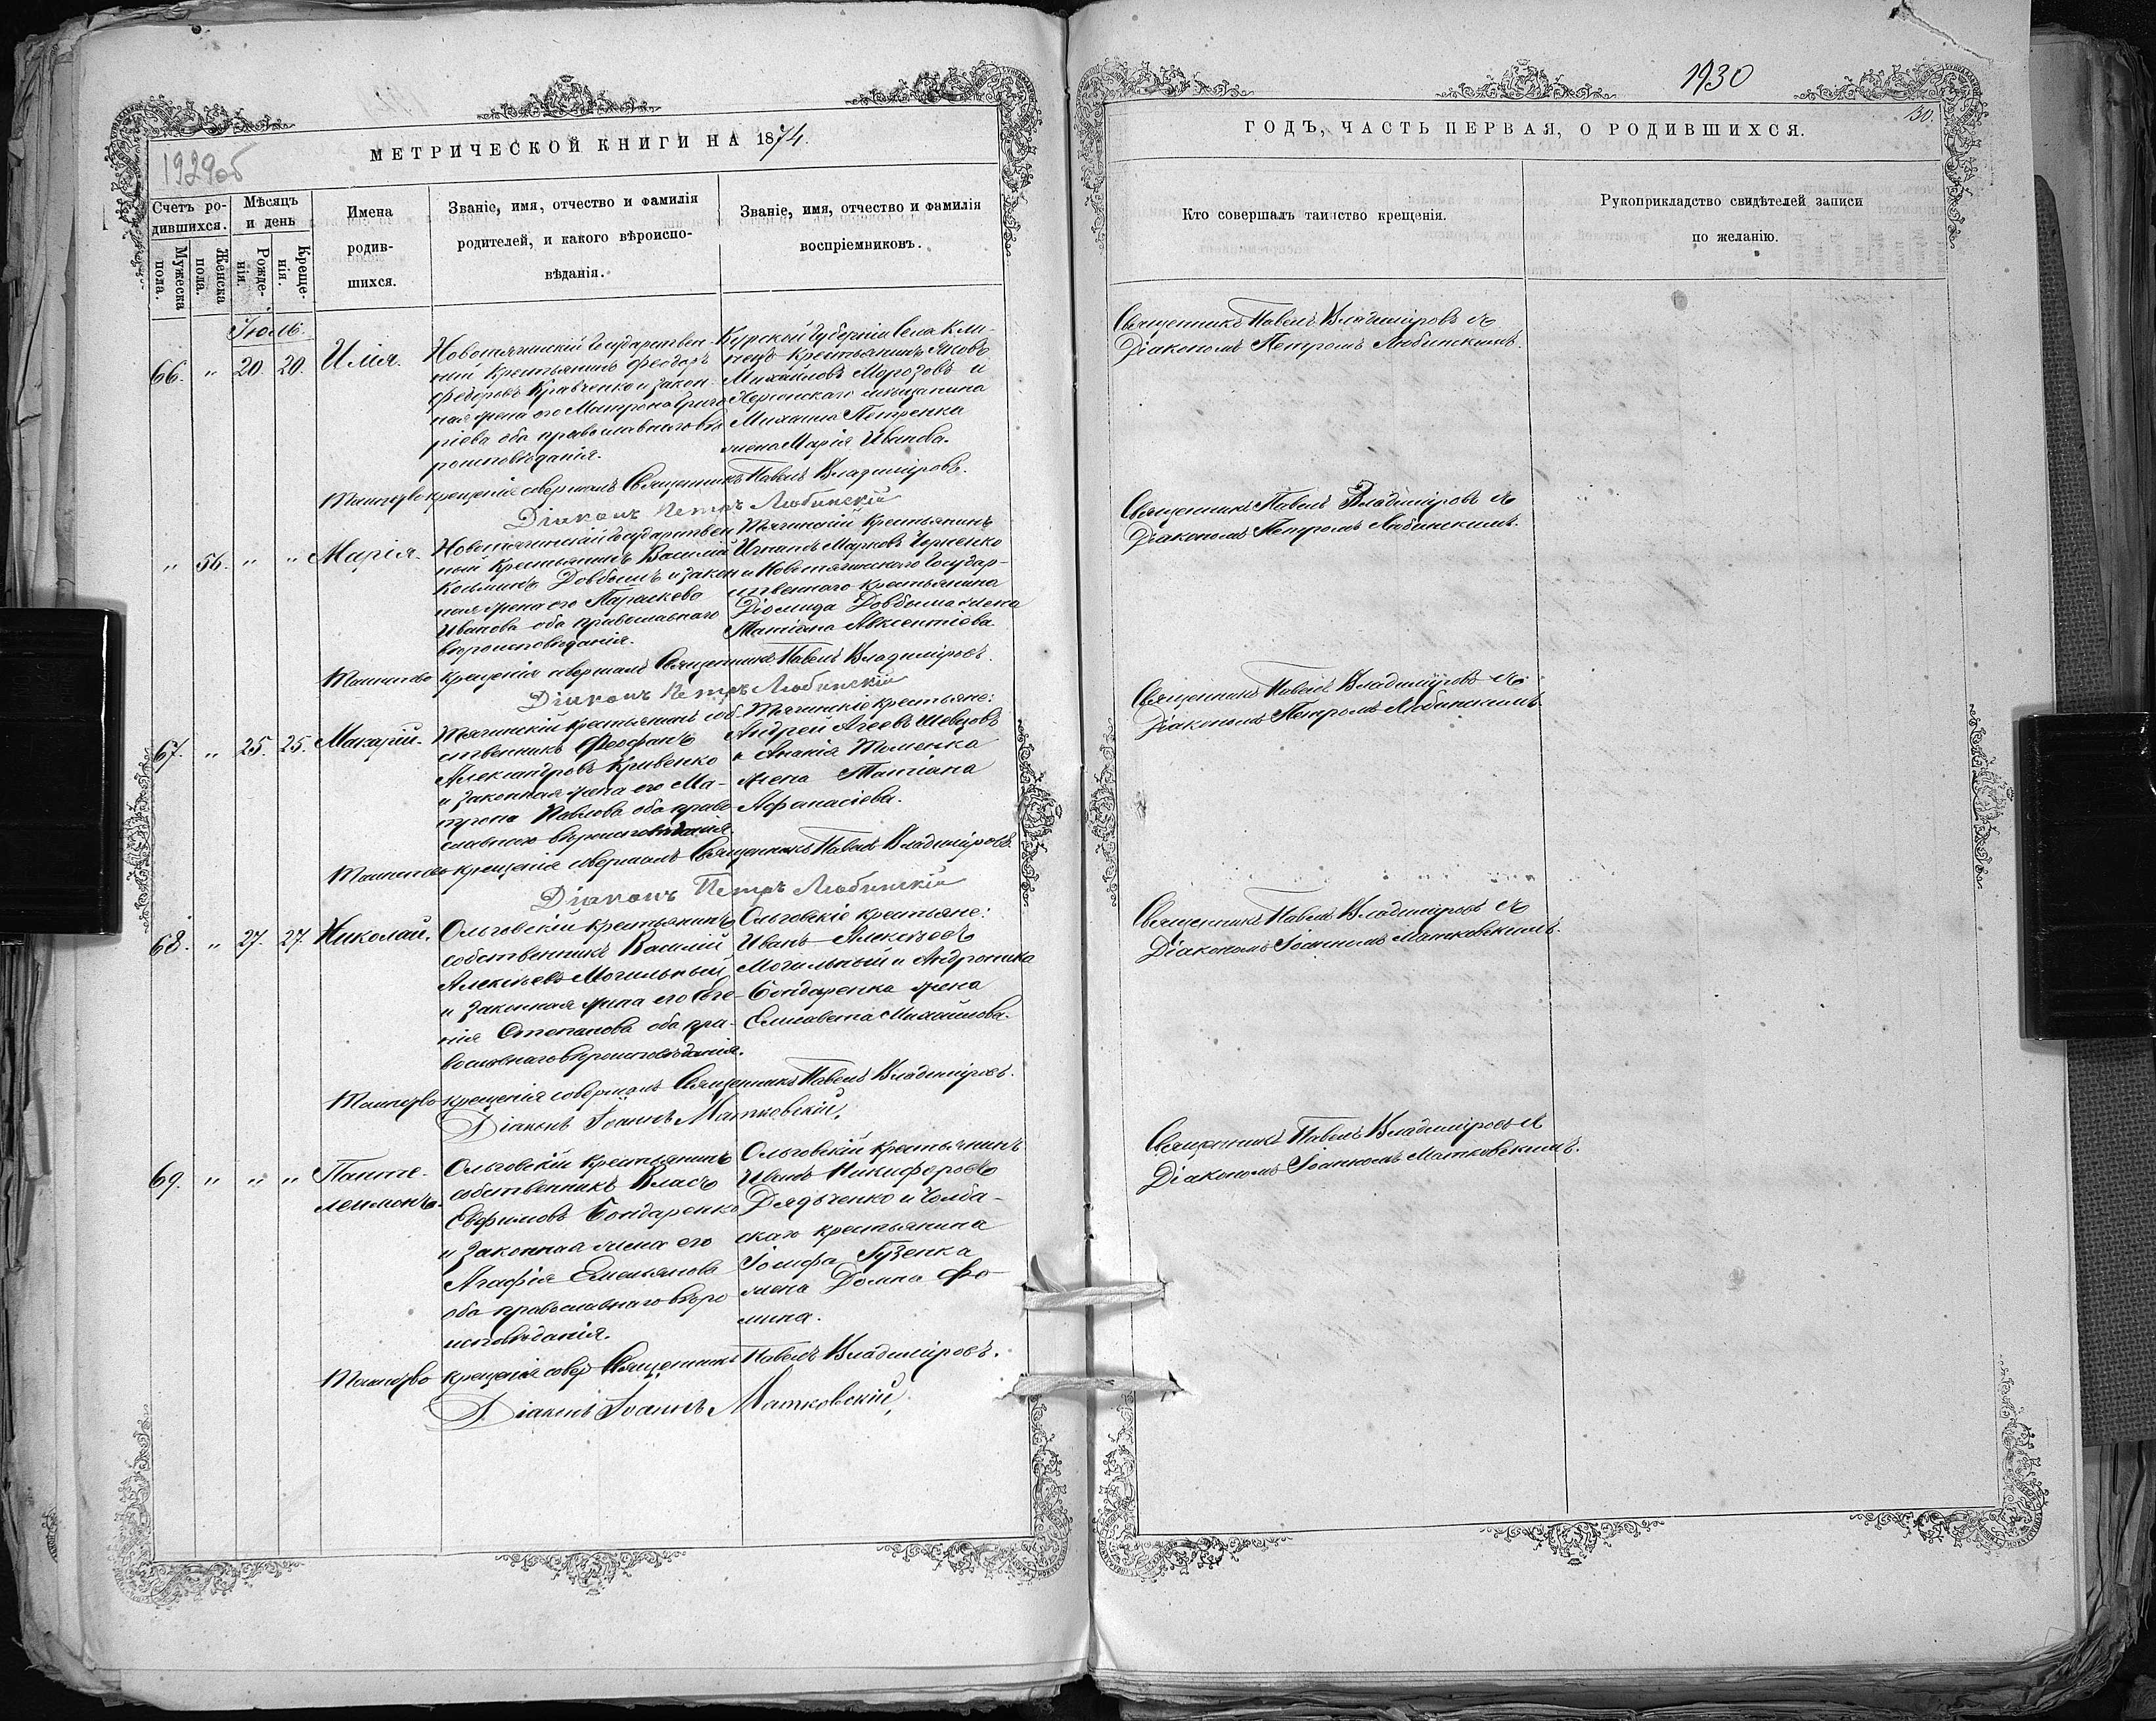 МЕТРИЧЕСКОЙ КНИГИ НА 1874.
1929об
Счетъ ро-
дившихся.
Мужеска
пола.
Женска
пола.
Мѣсяцъ
и день
Рожде-
нія.
Креще-
нія.
Имена
родив-
шихся.
Званіе, имя, отчество и фамилія
родителей, и какого вѣроиспо-
вѣданія.
Званіе, имя, отчество и фамилія
воспріемниковъ.
Іюль.
66. " 20. 20. Илія.
Новотягинскій Государствен-
ный Крестьянинъ Феодоръ
Федоровъ Кравченко и закон-
ная жена его Матрона Григо
ріева оба православнаго вѣ
роисповѣданія.
Курской Губерніи Села Кли-
крестьянинъ Яковъ
Михайловъ Морозовъ и
Херсонскаго мѣщанина
Михаила Петренка
жена Марія Иванова.
Таинство крещенія совершалъ Священникъ Павелъ Владиміровъ.
Діаконъ Петръ Любинскій
" 56. " " Марія.
Новотягинскій Государствен
ный Крестьянинъ Василій
Козьминъ Довбышъ и закон
ная жена его Параскева
Иванова оба православнаго
вѣроисповѣданія.
Тягинскій Крестьянинъ
Игнатъ Марковъ Черненко
и Новотягинскаго Государ-
ственнаго крестьянина
Діомида Довбыша жена
Татіана Авксентіева.
Таинство крещенія совершалъ Священникъ Павелъ Владиміровъ.
Діаконъ Петръ Любинскій
67. " 25. 25. Макарій.
Тягинскій крестьянинъ соб-
ственникъ Феофанъ
Александровъ Кривенко
и законная жена его Ма-
трона Павлова оба право
славнаго вѣроисповѣданія.
Тягинскіе крестьяне:
Андрей Агеевъ Шевцовъ
и Ананія Томенка
жена Татіана
Афанасіева.
Таинство крещенія совершалъ Священникъ Павелъ Владиміровъ.
Діаконъ Петръ Любинскій
68. " 27. 27. Николай.
Ольговскій крестьянинъ
собственникъ Василій
Алексѣевъ Могильный
и законная жена его Евге-
нія Степанова оба пра-
вославнаго вѣроисповѣданія.
Ольговскіе крестьяне:
Иванъ Алексѣевъ
Могильный и Андроника
Бондаренка жена
Елисавета Михайлова.
Таинство крещенія совершалъ Священникъ Павелъ Владиміровъ.
Діаконъ Іоаннъ Матковскій.
69. " " " Панте-
леимонъ.
Ольговскій Крестьянинъ
собственникъ Власъ
Евфимовъ Бондаренко
и законная жена его
Агафія Емельянова
оба православнаго вѣро
исповѣданія.
Ольговскій крестьянинъ
Иванъ Никифоровъ
Дядьченко и Чолба-
скаго крестьянина
Іосифа Гузенка
жена Домна Фо-
мина.
Таинство крещенія совер Священникъ Павелъ Владиміровъ.
Діаконъ Іоаннъ Матковскій.
1930
130.
ГОДЪ, ЧАСТЬ ПЕРВАЯ, О РОДИВШИХСЯ.
Кто совершалъ таинство крещенія.
Рукоприкладство свидѣтелей записи
по желанію.
Священникъ Павелъ Владиміровъ съ
Діакономъ Петромъ Любинскимъ.
Священникъ Павелъ Владиміровъ съ
Діакономъ Петромъ Любинскимъ.
Священникъ Павелъ Владиміровъ съ
Діакономъ Петромъ Любинскимъ
Священникъ Павелъ Владиміровъ съ
Діакономъ Іоанномъ Матковскимъ.
Священникъ Павелъ Владиміровъ съ
Діакономъ Іоанномъ Матковскимъ.